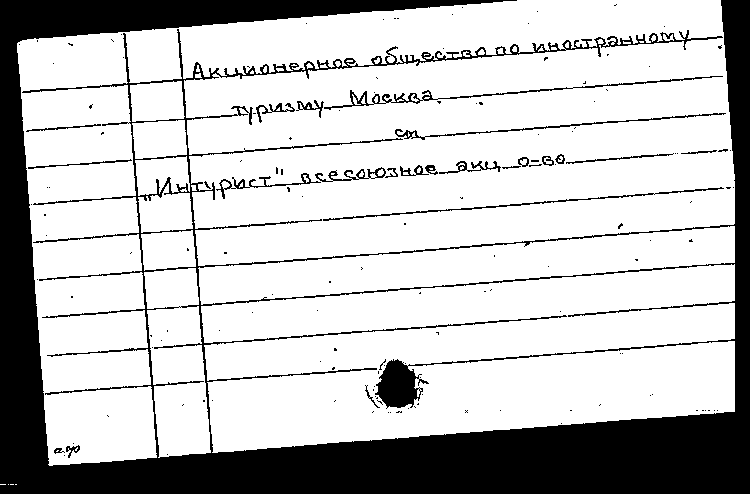 Акционерное общество по иностранному
туризму Москва
см.
„Интурист", всесоюзное акц. о-во